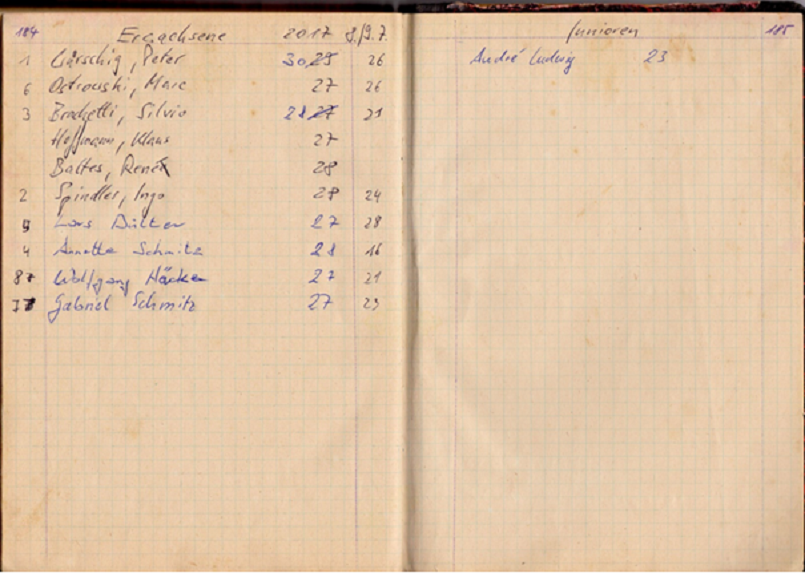 184 Erwachsene 2017 8./9.7.
1 Gürschig, Peter 30, 26
6 Ostrowski, Marc 27 26
3 Brochetti, Silvio 28 21
Hoffmann, Klaus 27
Baltes, René 28
2 Spindler, Ingo 28 24
5 Lars 27 28
4 Annette Schmitz 28 16
8 Wolfgang Häcken 27 21
7 Gabriel Schmitz 27 23
Junioren 185
André Ludwig 23